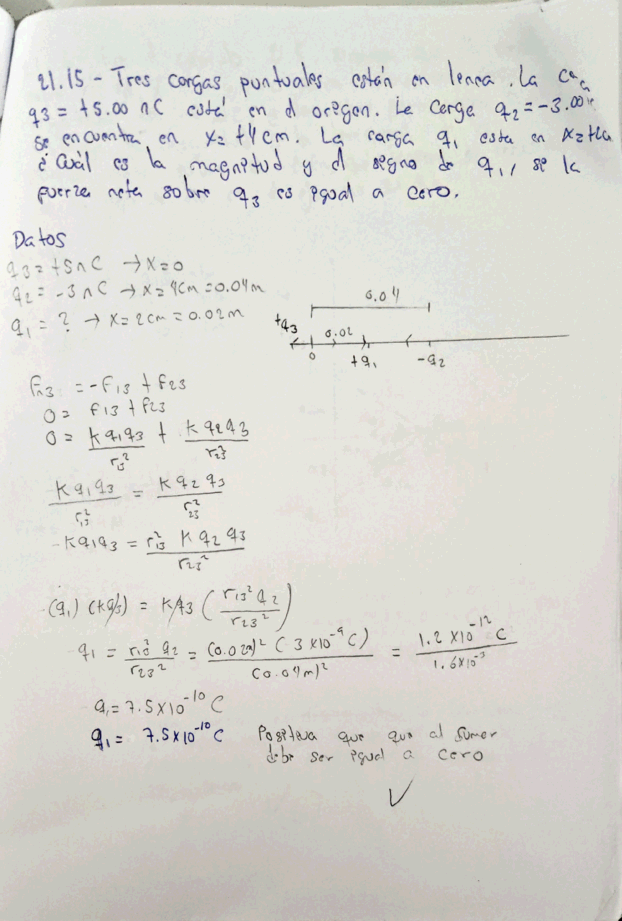 21.15 - Tres cargas puntuales están en lenea. La
q3 = +5.00 nC está en el origen. La Carga q2 = -3.00
se encuentra en x= +4cm. La carga q1 esta en x=
¿Cuál es la magnitud y el signo de q1, si la
fuerza neta sobre q3 es igual a cero.
Datos
q3 = +5nC → x=0
q2 = -3nC → x=4cm=0.04m
q1 = ? → x=2cm=0.02m
0.04
+q3 0.02
0 +q1 -q2
Fn3 = -F13 + F23
0= F13 + F23
0 = kq1q3/r13² + kq2q3/r23²
kq1q3/r13² = kq2q3/r23²
-kq1q3 = r13² kq2q3/r23²
-(q1)(kq3) = kq3 (r13² q2/r23²)
-q1 = r13² q2/r23² = (0.02m)² (-3x10⁻⁹C)/(0.04m)² = 1.2x10⁻¹² C/1.6x10⁻³
-q1=7.5x10⁻¹⁰ C
q1= 7.5x10⁻¹⁰ C Positiva que que al sumar
debe ser igual a cero